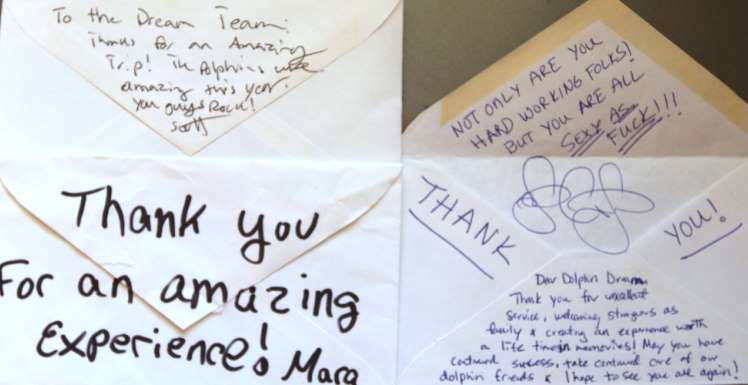 To the Dream Team:
Thanks for an Amazing
Trip! The Dolphins were
amazing this year.
You guys Rock!
Scott
Thank you
For an amazing
Experience! Mara
NOT ONLY ARE YOU
HARD WORKING FOLKS!
BUT YOU ARE ALL
SEXY AS
FUCK!!!
THANK
YOU!
Dear Dolphin Dream,
Thank you for excellent
service, welcoming strangers as
family & creating an experience worth
a life time in memories! May you have
continued success, take continued care of our
dolphin friends & I hope to see you all again!